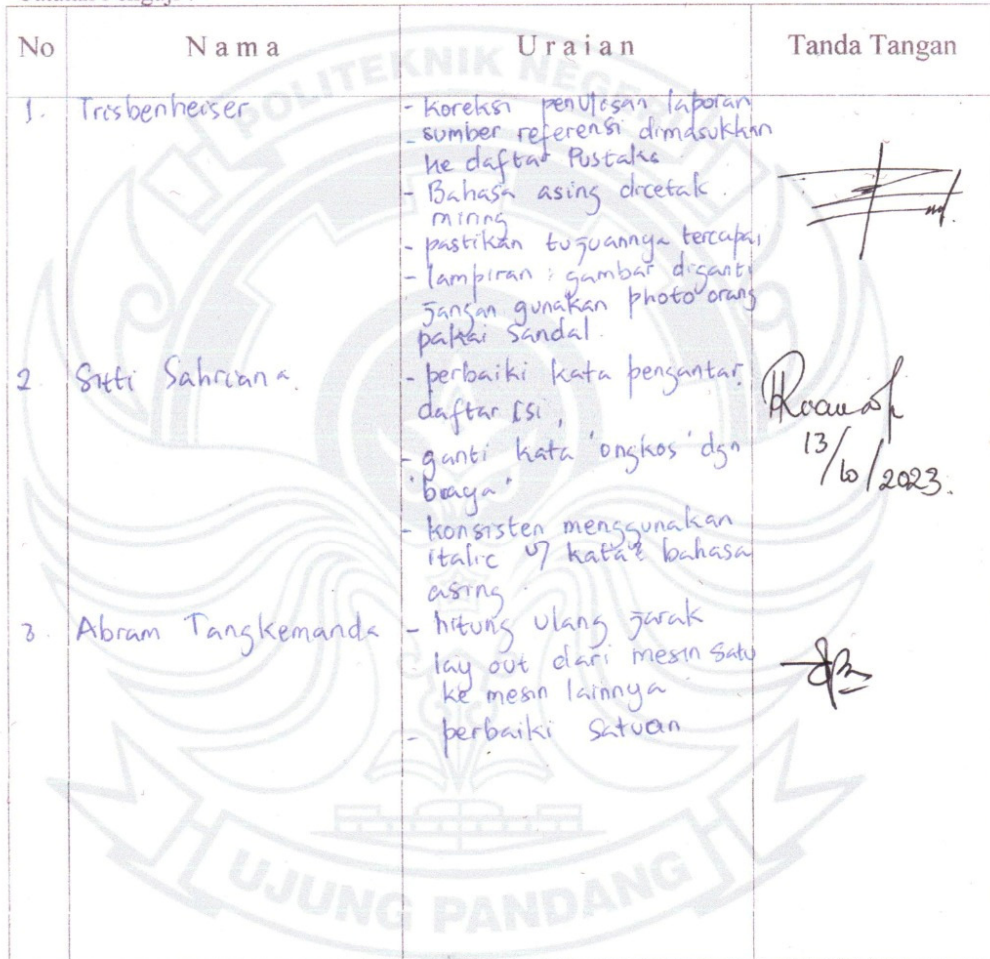 No Nama Uraian Tanda Tangan
POLITEKNIK NEGERI
1. Trisbenheiser - koreksi penulisan laporan
- sumber referensi dimasukkan
ke daftar Pustaka
- Bahasa asing dicetak
miring
- pastikan tujuannya tercapai
- lampiran : gambar diganti
jangan gunakan photo orang
pakai sandal.
2 Sitti Sahriana. - perbaiki kata pengantar,
daftar isi,
- ganti kata 'ongkos' dgn
'biaya'
13/10/2023.
- konsisten menggunakan
italic u/ kata2 bahasa
asing
3. Abram Tangkemanda - hitung ulang jarak
lay out dari mesin satu
ke mesin lainnya
- perbaiki satuan
UJUNG PANDANG